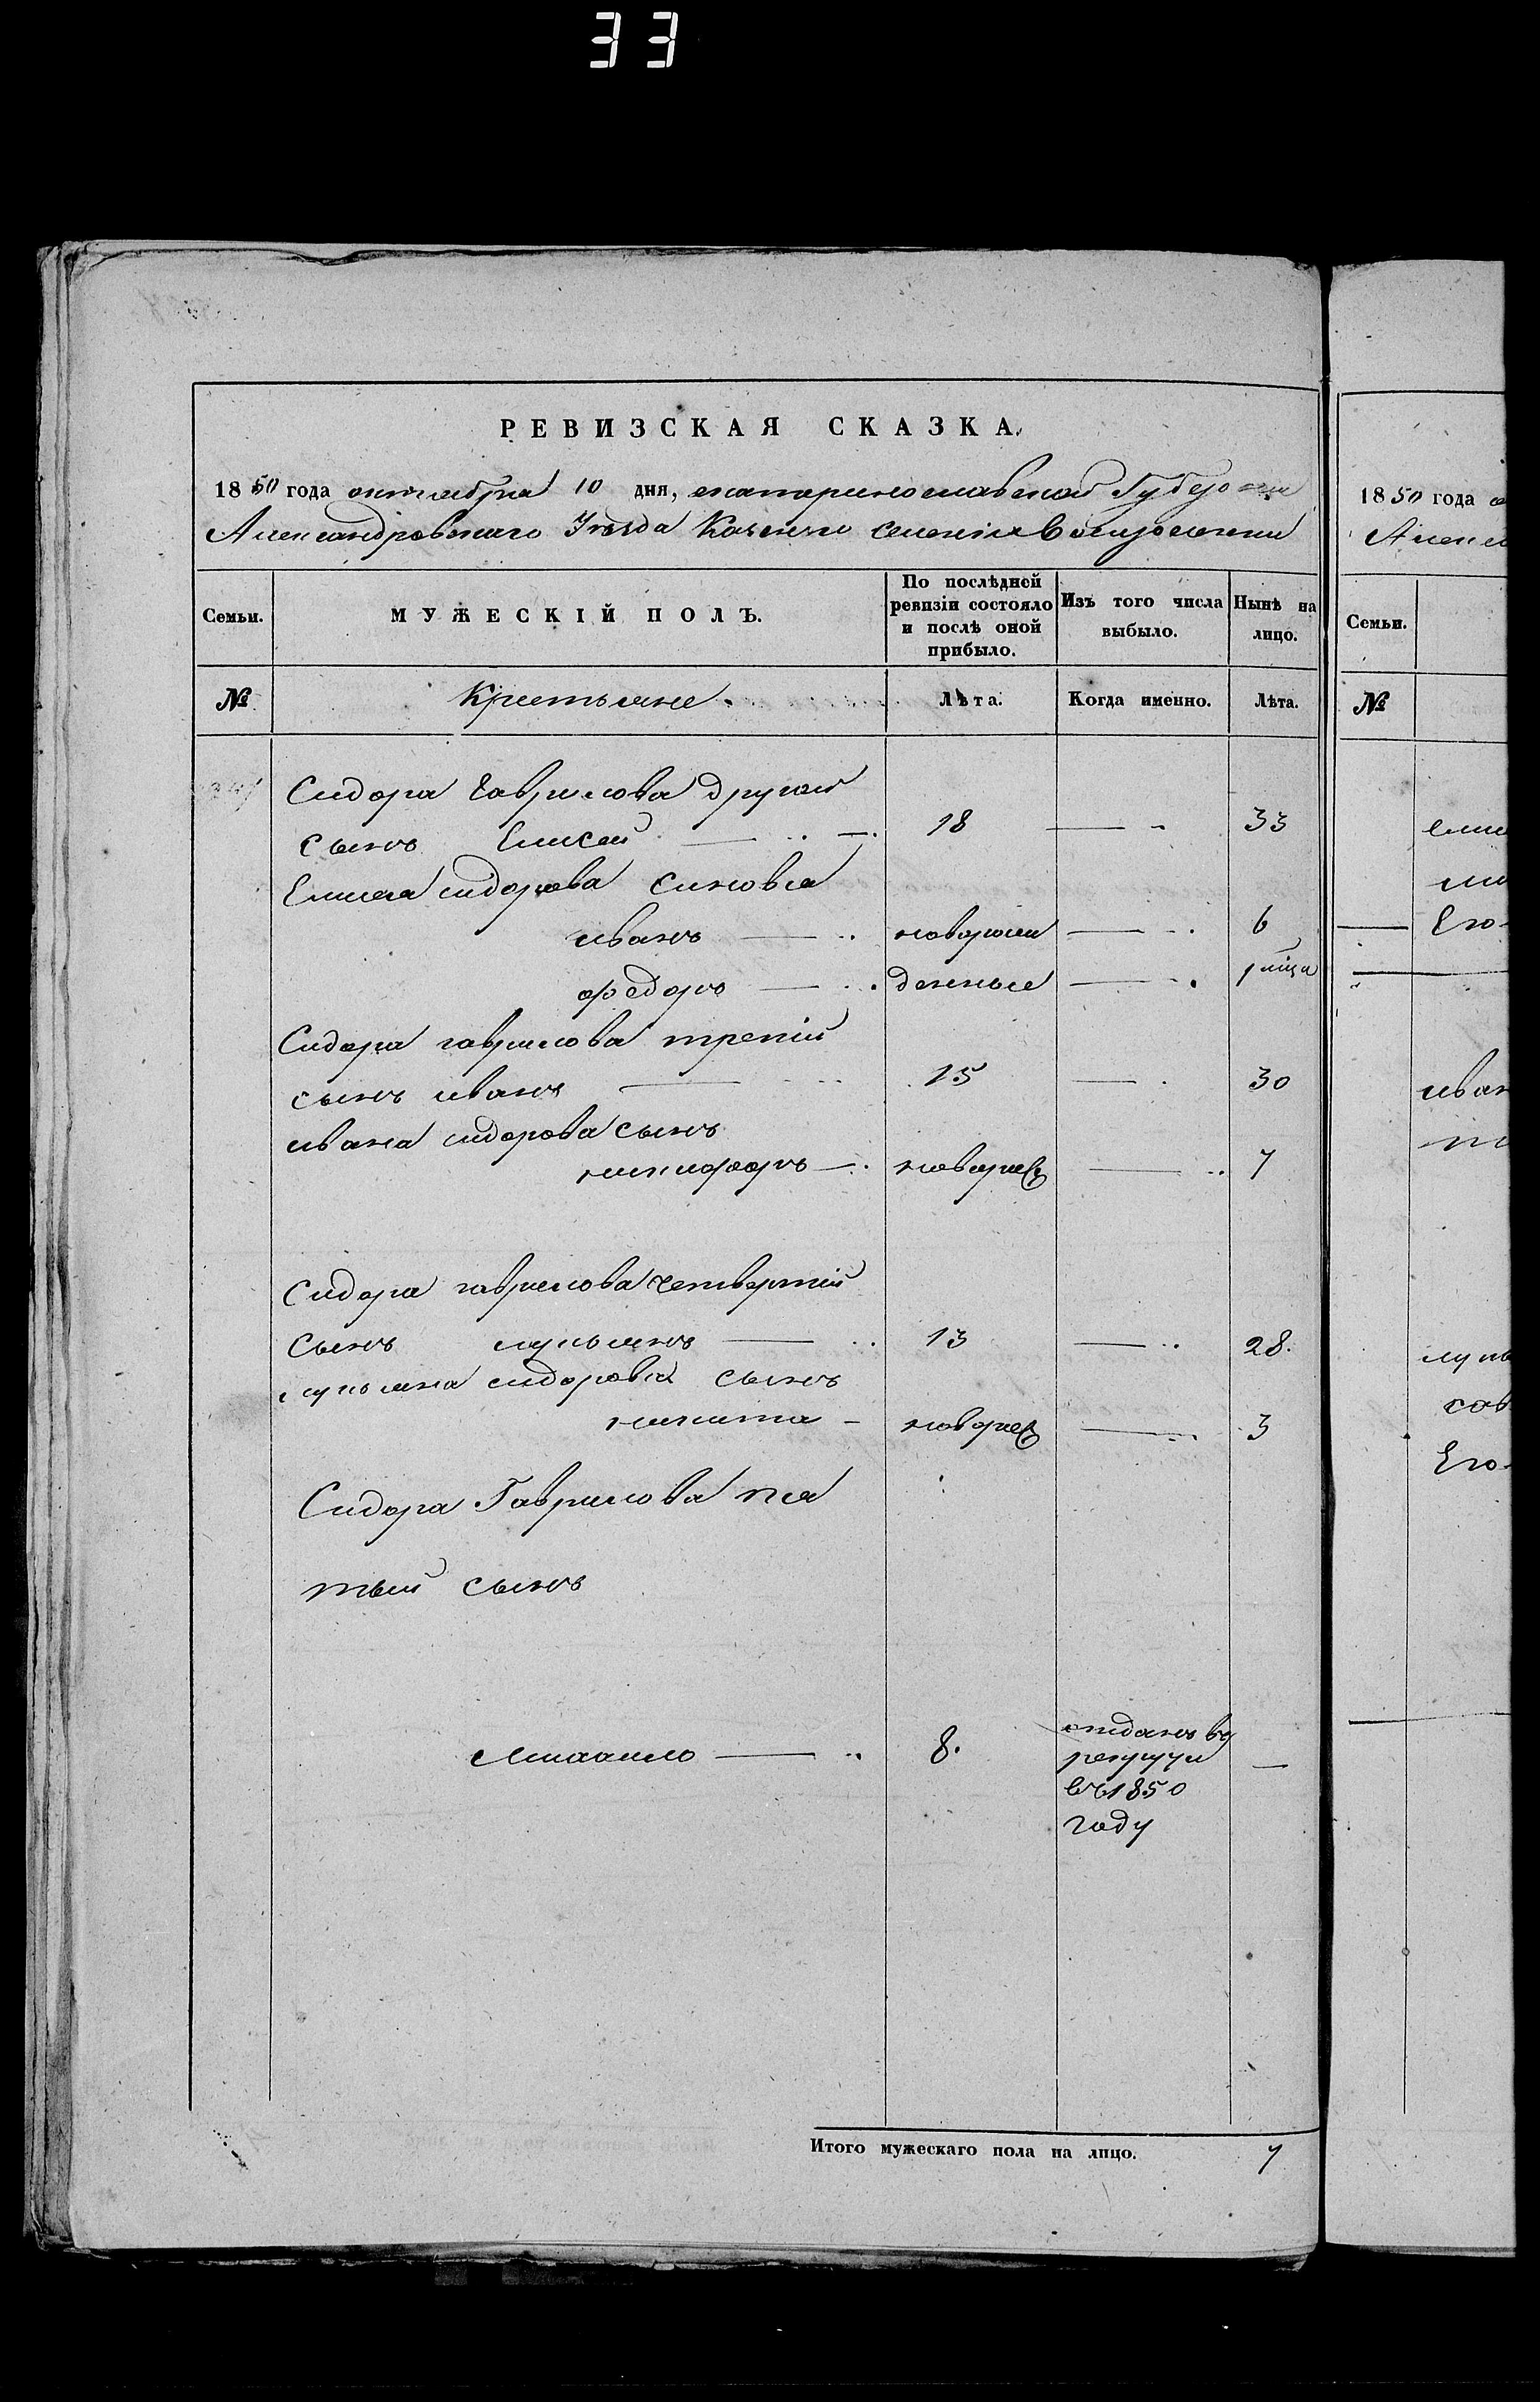 33
РЕВИЗСКАЯ СКАЗКА.
1850 года октября 10 дня, екатеринославской Губернии
Александровского Уезда Казенного селения Воскресенки
Семьи.
МУЖЕСКІЙ ПОЛЪ.
По послѣдней ревизіи состояло и послѣ оной прибыло.
Изъ того числа выбыло.
Нынѣ на лицо.
№
Крестьяне
Лѣта.
Когда именно.
Лѣта.
Сидора Гаврилова другой
сынъ Елисей 18 33
Елисея сидорова синовья
иванъ новорож 6
федоръ денные
Сидора гаврилова третій
сынъ иванъ 15 30
ивана сидорова сынъ
никифоръ новорж 7
Сидора гаврилова четвертій
сынъ лукьянъ 13 28.
лукьяна сидорова сынъ
никита новорж 3
Сидора Гаврилова пя
тый сынъ
михаило 8. отданъ въ
рекруты
въ 1850
году
Итого мужескаго пола на лицо. 7
1850 года
Семьи.
№
Его
иван
Его